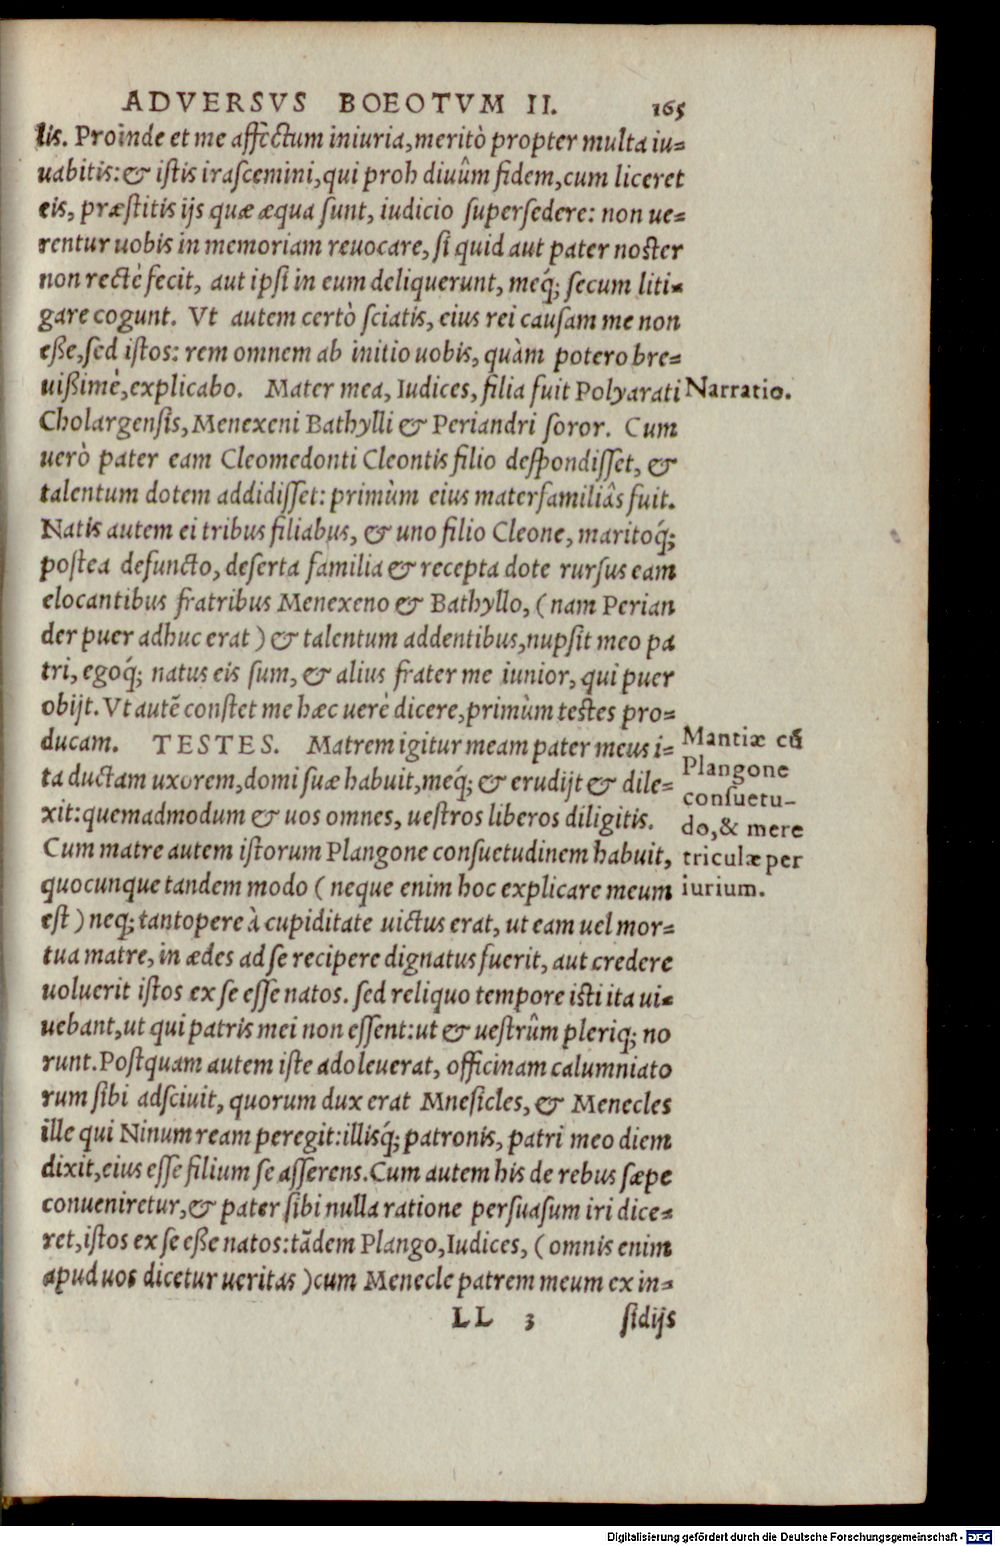 ADVERSVS BOEOTVM II. 165
lis. Proinde et me affectum iniuria, meritò propter multa iu=
uabitis: & istis irascemini, qui proh diuûm fidem, cum liceret
eis, præstitis ijs quæ æqua sunt, iudicio supersedere: non ue=
rentur uobis in memoriam reuocare, si quid aut pater noster
non rectè fecit, aut ipsi in eum deliquerunt, meq́; secum liti=
gare cogunt. Vt autem certò sciatis, eius rei causam me non
eße, sed istos: rem omnem ab initio uobis, quàm potero bre=
uißimè, explicabo. Mater mea, Iudices, filia fuit Polyarati
Narratio.
Cholargensis, Menexeni Bathylli & Periandri soror. Cum
uerò pater eam Cleomedonti Cleontis filio despondisset, &
talentum dotem addidisset: primùm eius materfamiliâs fuit.
Natis autem ei tribus filiabus, & uno filio Cleone, maritoq́;
postea defuncto, deserta familia & recepta dote rursus eam
elocantibus fratribus Menexeno & Bathyllo, (nam Perian
der puer adhuc erat) & talentum addentibus, nupsit meo pa
tri, egoq́; natus eis sum, & alius frater me iunior, qui puer
obijt. Vt autẽ constet me hæc uerè dicere, primùm testes pro=
ducam. TESTES. Matrem igitur meam pater meus i=
ta ductam uxorem, domi suæ habuit, meq́; & erudijt & dile=
xit: quemadmodum & uos omnes, uestros liberos diligitis.
Cum matre autem istorum Plangone consuetudinem habuit,
quocunque tandem modo (neque enim hoc explicare meum
est) neq; tantopere à cupiditate uictus erat, ut eam uel mor=
tua matre, in ædes ad se recipere dignatus fuerit, aut credere
uoluerit istos ex se esse natos. sed reliquo tempore isti ita ui=
uebant, ut qui patris mei non essent: ut & uestrûm pleriq; no
runt. Postquam autem iste adoleuerat, officinam calumniato
rum sibi adsciuit, quorum dux erat Mnesicles, & Menecles
ille qui Ninum ream peregit: illisq́; patronis, patri meo diem
dixit, eius esse filium se asserens. Cum autem his de rebus sæpe
conueniretur, & pater sibi nulla ratione persuasum iri dice=
ret, istos ex se eße natos: tãdem Plango, Iudices, (omnis enim
apud uos dicetur ueritas) cum Menecle patrem meum ex in=
Mantiæ cũ
Plangone
consuetu-
do, & mere
triculæ per
iurium.
LL 3 sidijs
Digitalisierung gefördert durch die Deutsche Forschungsgemeinschaft - DFG